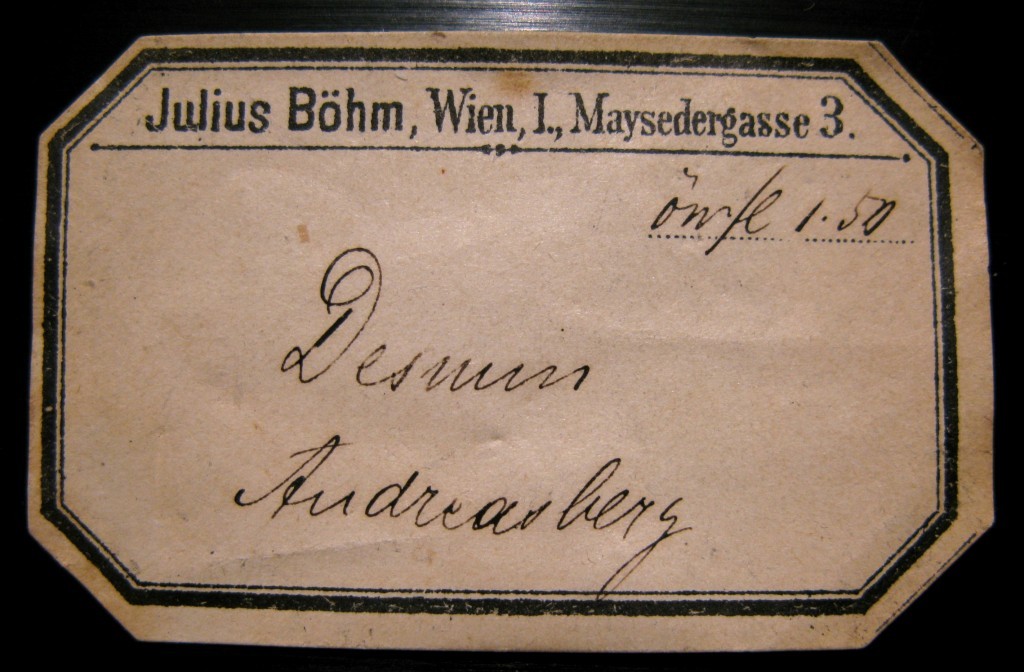 Julius Böhm, Wien, I., Maysedergasse 3.
öwfl 1.50
Desmin
Andreasberg